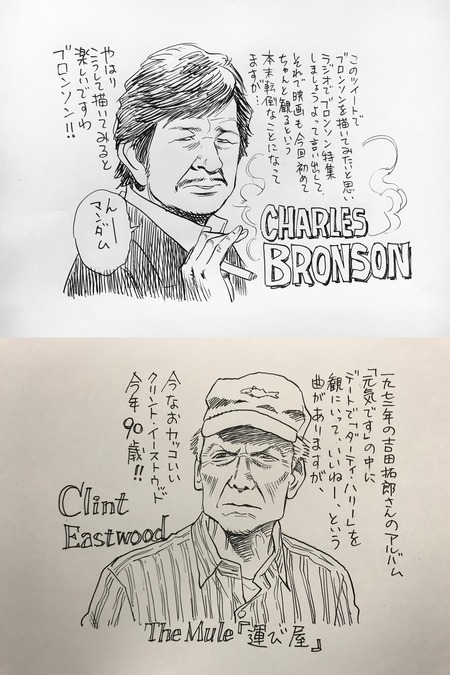 このツイートで
ブロンソンを描いてみたいと思い
ラジオでブロンソン特集
しましょうよって言い出して
それで映画も今回初めて
ちゃんと観るという
本末転倒なことになって
ますが…
やはり
こうして描いてみると
楽しいですわ
ブロンソン!!
んー
マンダム
CHARLES
BRONSON
一九七二年の吉田拓郎さんのアルバム
「元気です」の中に
デートで「ダーティ・ハリー」を
観にいって、いいねー、という
曲がありますが、
今なおカッコいい
クリント・イーストウッド
今年90歳!!
Clint
Eastwood
The Mule『運び屋』